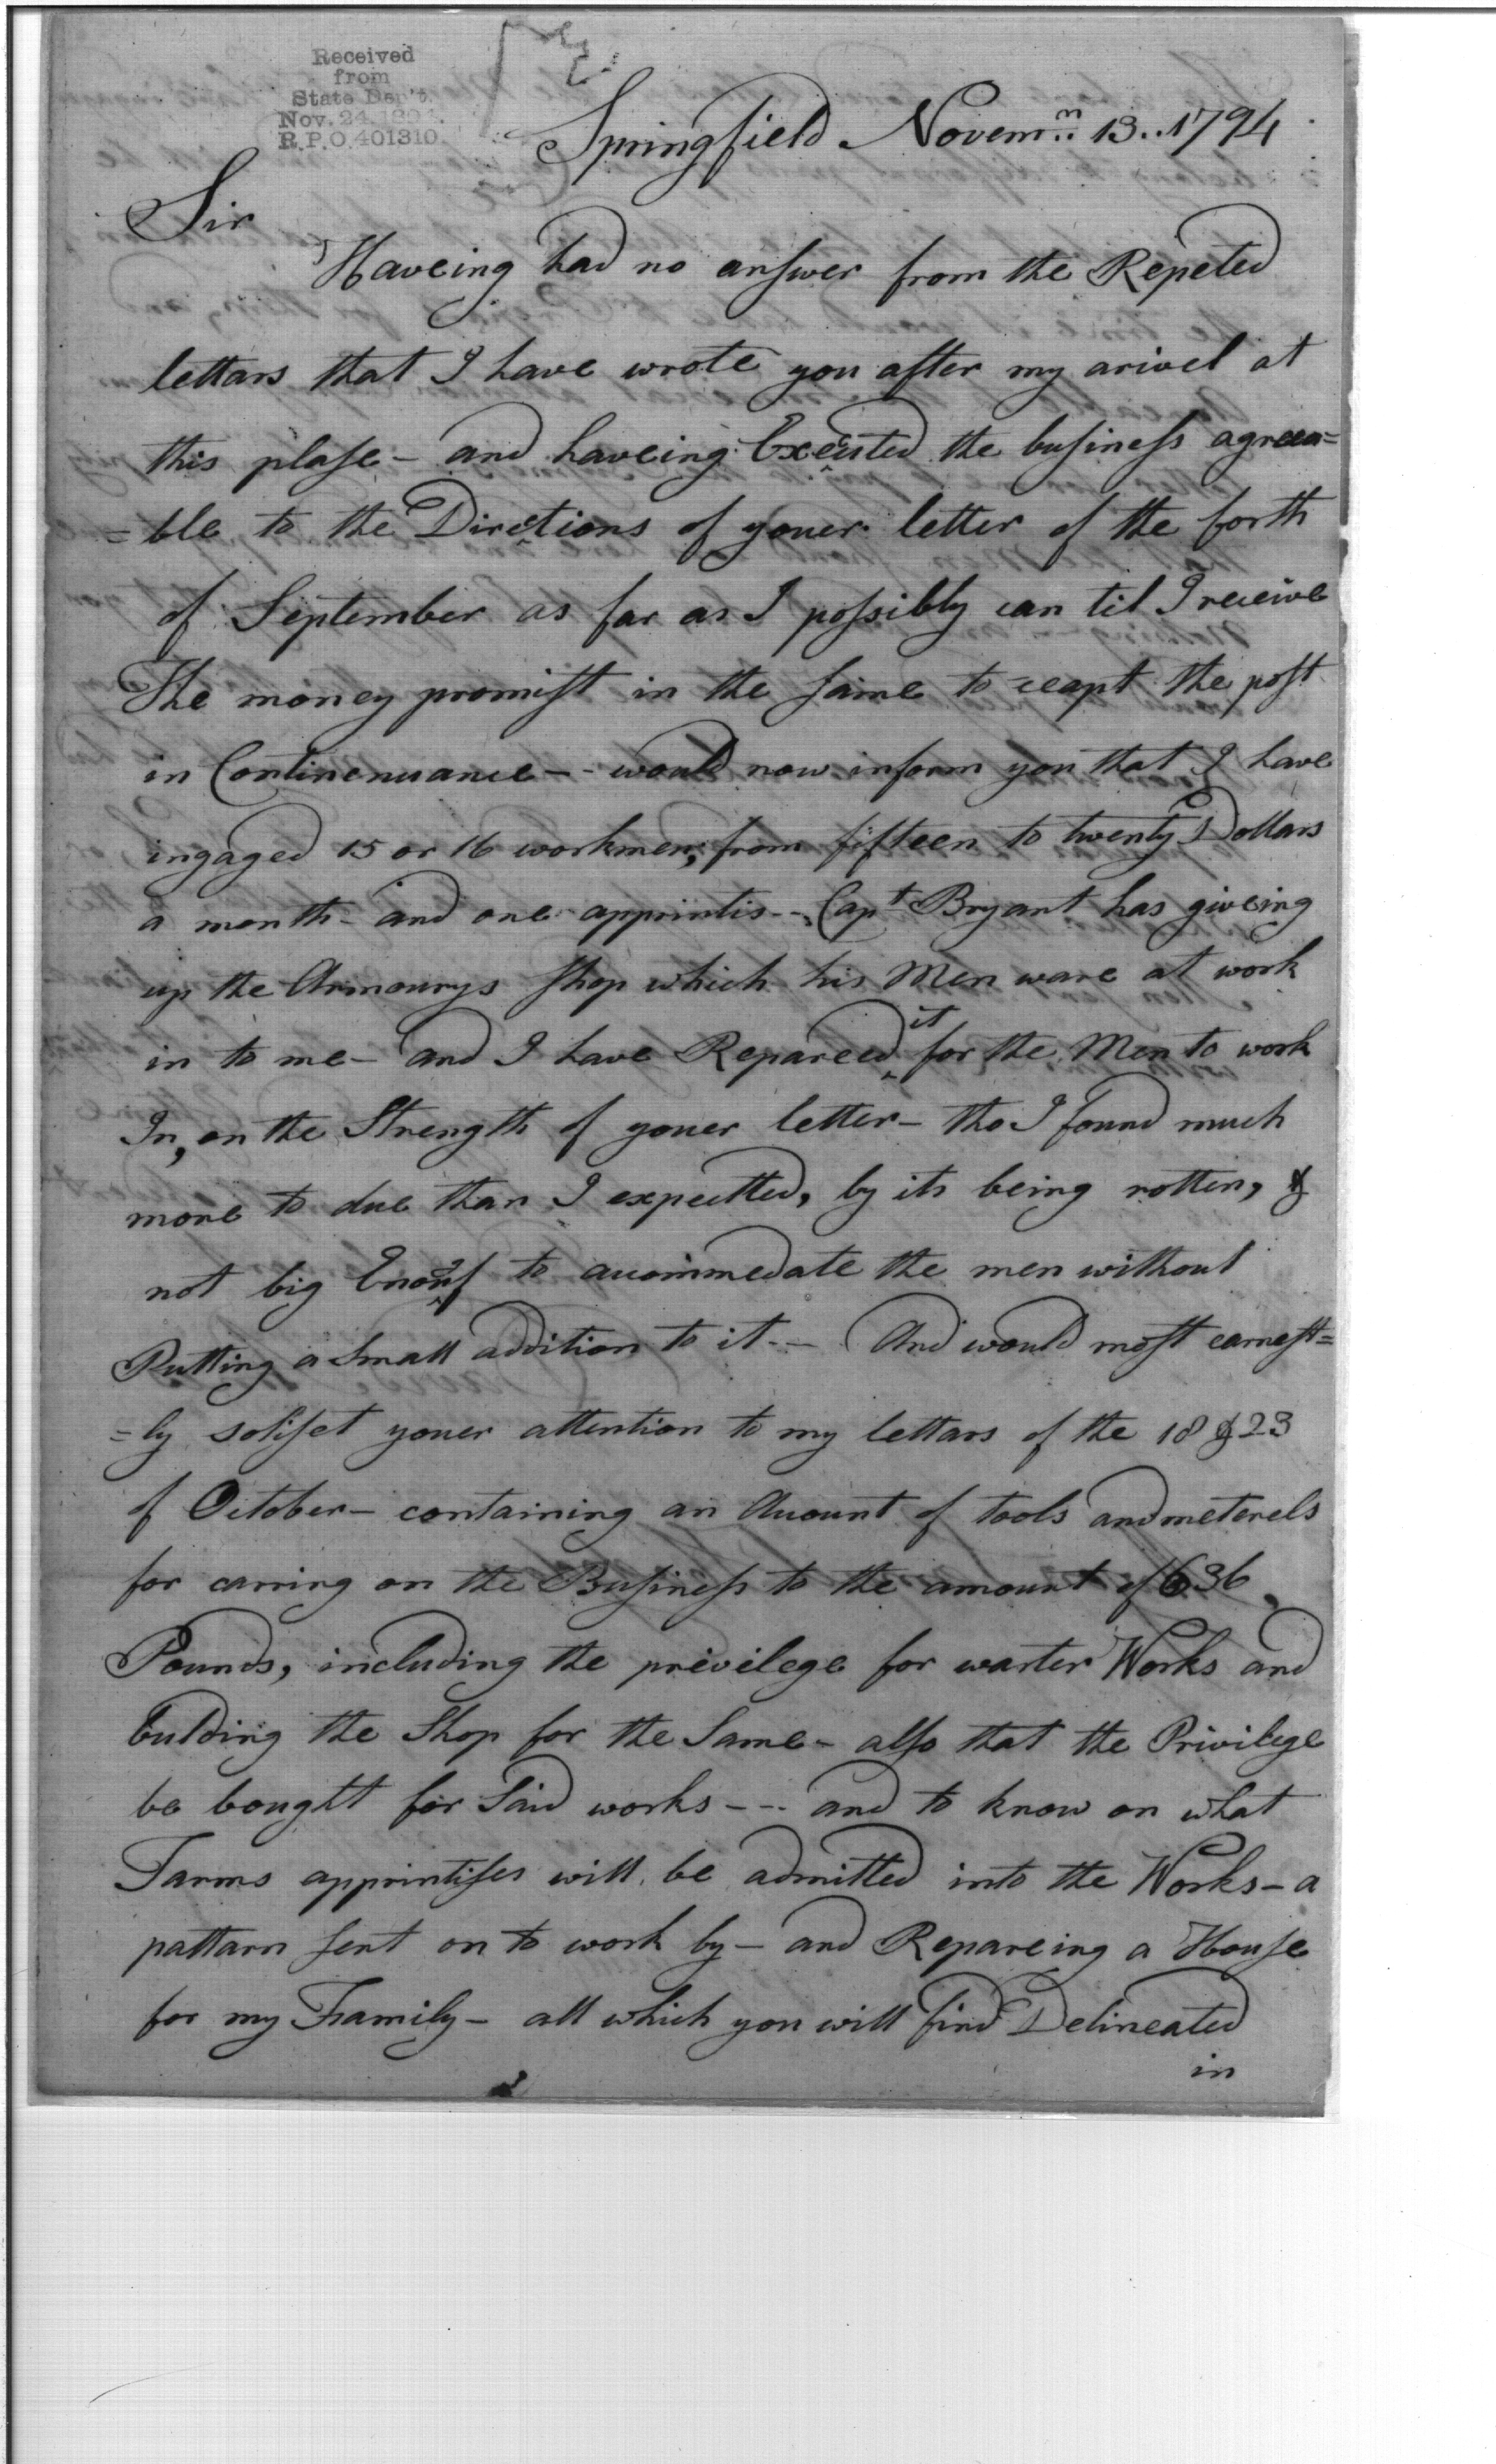 Received
from
State Dep't.
Nov. 24
R.P.O. 401310.
Springfield Novem.n 13..1794
Sir
Haveing had no answer from the Repeted
lettars that I have wrote you after my arivel at
this plase - and haveing Executed the business agreea=
=ble to the Directions of youer letter of the forth
of September as far as I possibly can til I receive
The money promist in the same to the post
in Continenuance -- would now inform you that I have
ingaged 15 or 16 workmen, from fifteen to twenty Dollars
a month - and one apprintis -- Capt Bryant has giveing
up the Armourys shop which his Men ware at work
in to me - and I have Repareed it for the Men to work
In, on the Strength of youer letter - tho I found much
more to due than I expectted, by its being rotten, &
not big Enouf to acommedate the men without
Putting a Small addition to it -- And would most earnest=
=ly soliset youer attention to my lettars of the 18 & 23
of October - containing an Acount of tools and meterels
for carring on the Business to the amount of 636
Pounds, including the privilege for warter Works and
bulding the Shop for the Same - also that the Privilege
be bought for Said works --- and to know on what
Tarms apprintises will be admitted into the Works - a
pattarn sent on to work by - and Repareing a House
for my Family - all which you will find Delineated
in